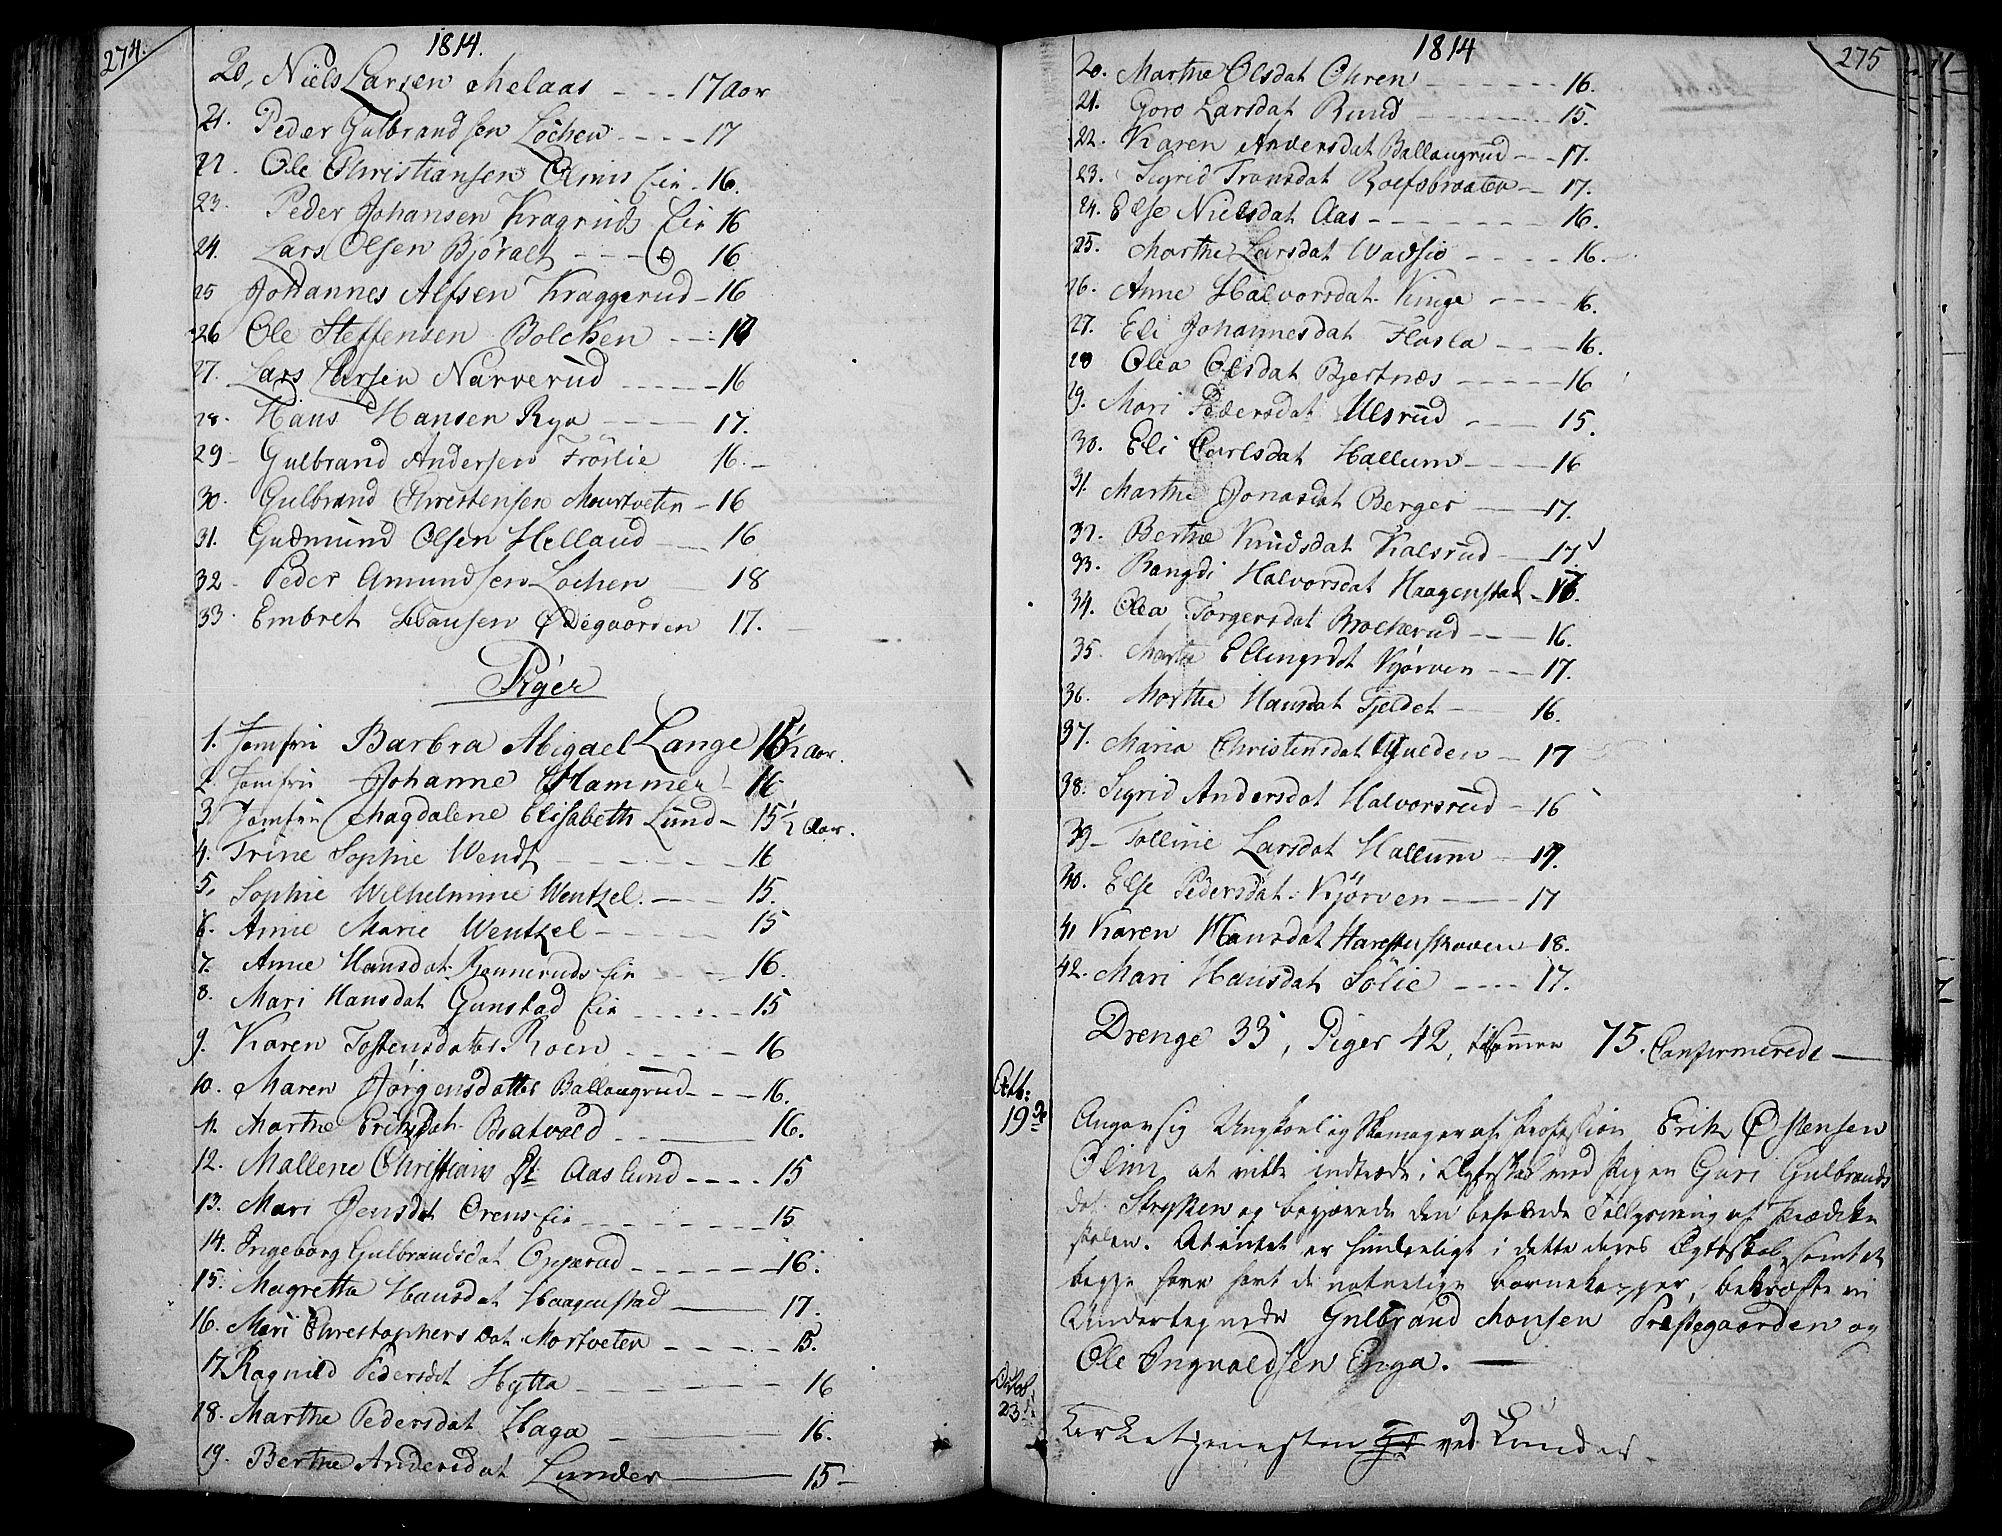 274.
1814.
20, Niels Larsen Melaas - - - 17 Aar
21. Peder Gulbrandsen Løchen - - - - 17
22. Ole Christiansen Olmis Eie - 16.
23. Peder Johansen Kragruds Eie 16
24. Lars Olsen Bjøralt - - - - 16
25 Johannes Alfsen Kraggerud - 16
26 Ole Steffensen Bolcken - -
27. Lars Larsen Narverud - - - - - 16
28. Hans Hansen Rya - - - - 17.
29 - Gulbrand Andersen Frøslie 16. -
30. Gulbrand Christensen Moortveten - 16
31. Gudmund Olsen Helland - - 16
32 - Peder Amundsen Løchen - 18
33. Embret Hansen Ødegaarden 17.
Piger
1. Jomfru Barbra Abigael Lange 15½ Aar.
2. Jomfru Johanne Hammer 16
3 Jomfru Magdalene Elisabeth Lund - 15½ Aar.
4. Trine Sophie Wendt - - - - - - 16
5. Sophie Wilhelmine Wentzel. - - - 15.
6. Anne Marie Wentzel - - - - - 15
7. Anne Hansdat. Rønneruds Eie - - - 16.
8. Mari Hansdat Gunstad Eie - - - - - 15
9. Karen Tostensdatter Roen - - - - - 16
10. Maren Jørgensdatter Ballangrud - - - 16.
11. Marthe Ericksdat. Bratvold - - - 16.
12. Mallene Christians Dt Aaslund - - - - 15
13. Mari Jensdat Orens Eie - - - - - - - 15
14. Ingeborg Gulbrandsdat - - - - - - 16.
15. Magrette Hansdat Haagenstad - 17.
16. Mari Christophersdat Mortveten - - - - - 15.
17. Ragnild Pedersdat Hytta - - - - - - 16
18. Marthe Pedersdat Haga - 16.
19. Berthe Andersdat Lunder - 15 -
1814
275
20. Marthe Olsdat Ohren - - - - - - 16.
21. Goro Larsdat Ruud - - - - - - 15.
22. Karen Andersdat Ballangrud - - - 17.
23. Sigrid Tronsdat Rolfsbraaten - 17.
24. Else Nielsdat Aas - - - - - - - 16.
25. Marthe Larsdat - - - - - 16.
26. Anne Halvorsdat. Kinge - - - - 16.
27. Eli Johannesdat Flasla - - - 16.
28 Olea Olsdat Bjertnæs - - - - - 16
29. Mari Pedersdat Ulsrud - - - 15.
30. Eli Carlsdat Hallum - - - - 16
31. Marthe Jonasdat Berger - - 17.
32. Berthe Knudsdat Kalsrud - - 17.
33. Rangdi Halvorsdat Haagenstad -
34. Olea Torgersdat Brocherud - - - 16.
35. Marthe Ellingsdat Kjørven - - 17.
36. Marthe Hansdat Fjeldet - 16.
37. Maria Christensdat Hulden - 17
38. Sigrid Andersdat Halvorsrud - 16
39 - Tolline Larsdat Hallum - 17.
40. Else Pedersdat. Kjørven - - - 17
41 Karen Hansdat Skoven - 18.
42. Mari Hansdat Sølie - - - - 17.
Drenge 33, Piger 42, tilsammen 75. Confirmerede -
Octb:
19de
Angav sig Ungkarl og Skomager af Profession Erik Østensen
Olmi, at ville indtræde i Ægteskab med Pigen Gari Gulbrands
dat. Strykken og begjærede den befalende Tillysning af Prædike
stolen. At intet er hinderligt i dette deres Ægteskab, samt at
begge have havt de naturlige Børnekopper, bekræfte vi
Undertegnede Gulbrand Monsen Prestegaarden og
Ole Ingvaldsen Enga. -
Octob.
23
Kirketjenesten ved Lunder.